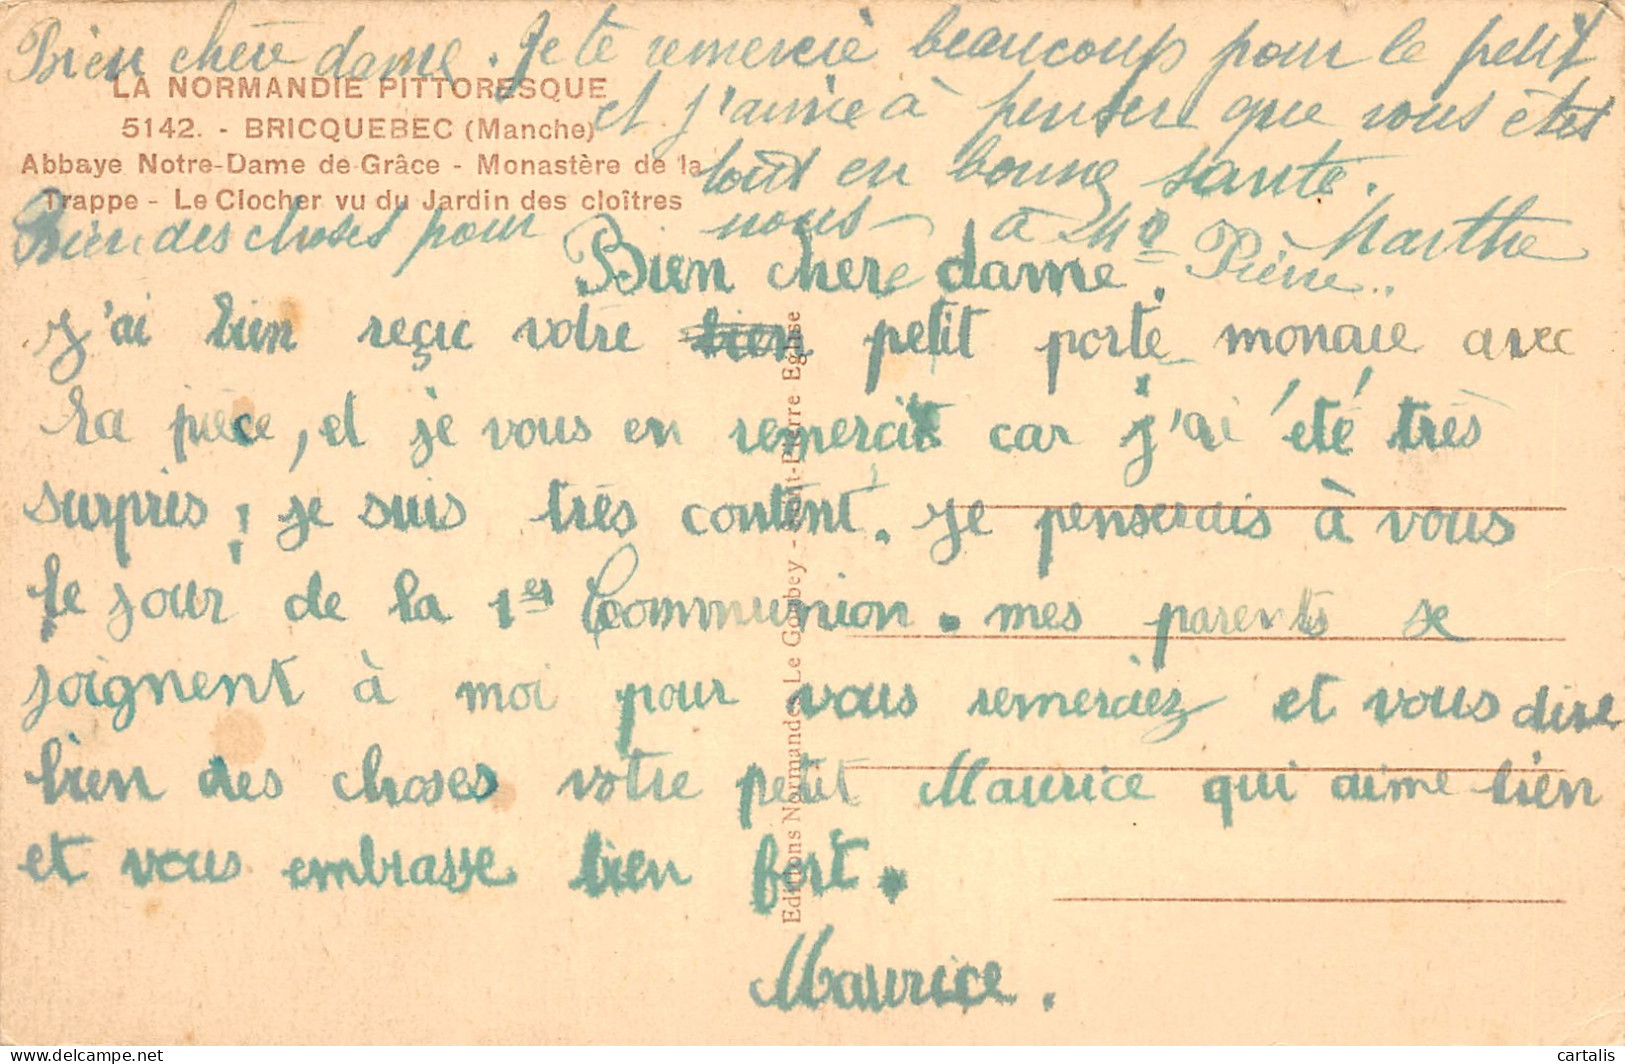 Bien chère dame. Je te remercie beaucoup pour le petit
LA NORMANDIE PITTORESQUE
et j'aime à penser que vous êtes
5142. - BRICQUEBEC (Manche)
Abbaye Notre-Dame de Grâce - Monastère de la
tout en bonne santé.
Trappe - Le Clocher vu du Jardin des cloîtres
Bien des choses pour nous à Pierre.. Marthe
Bien chere dame.
J'ai bien reçu votre bien petit porte monaie avec
la pièce, et je vous en remercie car j'ai été très
surpris ; je suis très content. Je penserais à vous
le jour de la 1er Communion. mes parents se
joignent à moi pour vous remerciez et vous dire
bien des choses votre petit Maurice qui aime bien
et vous embrasse bien fort.
Maurice.
Editions Normandes Le Goubey - Saint-Pierre Eglise
cartalis